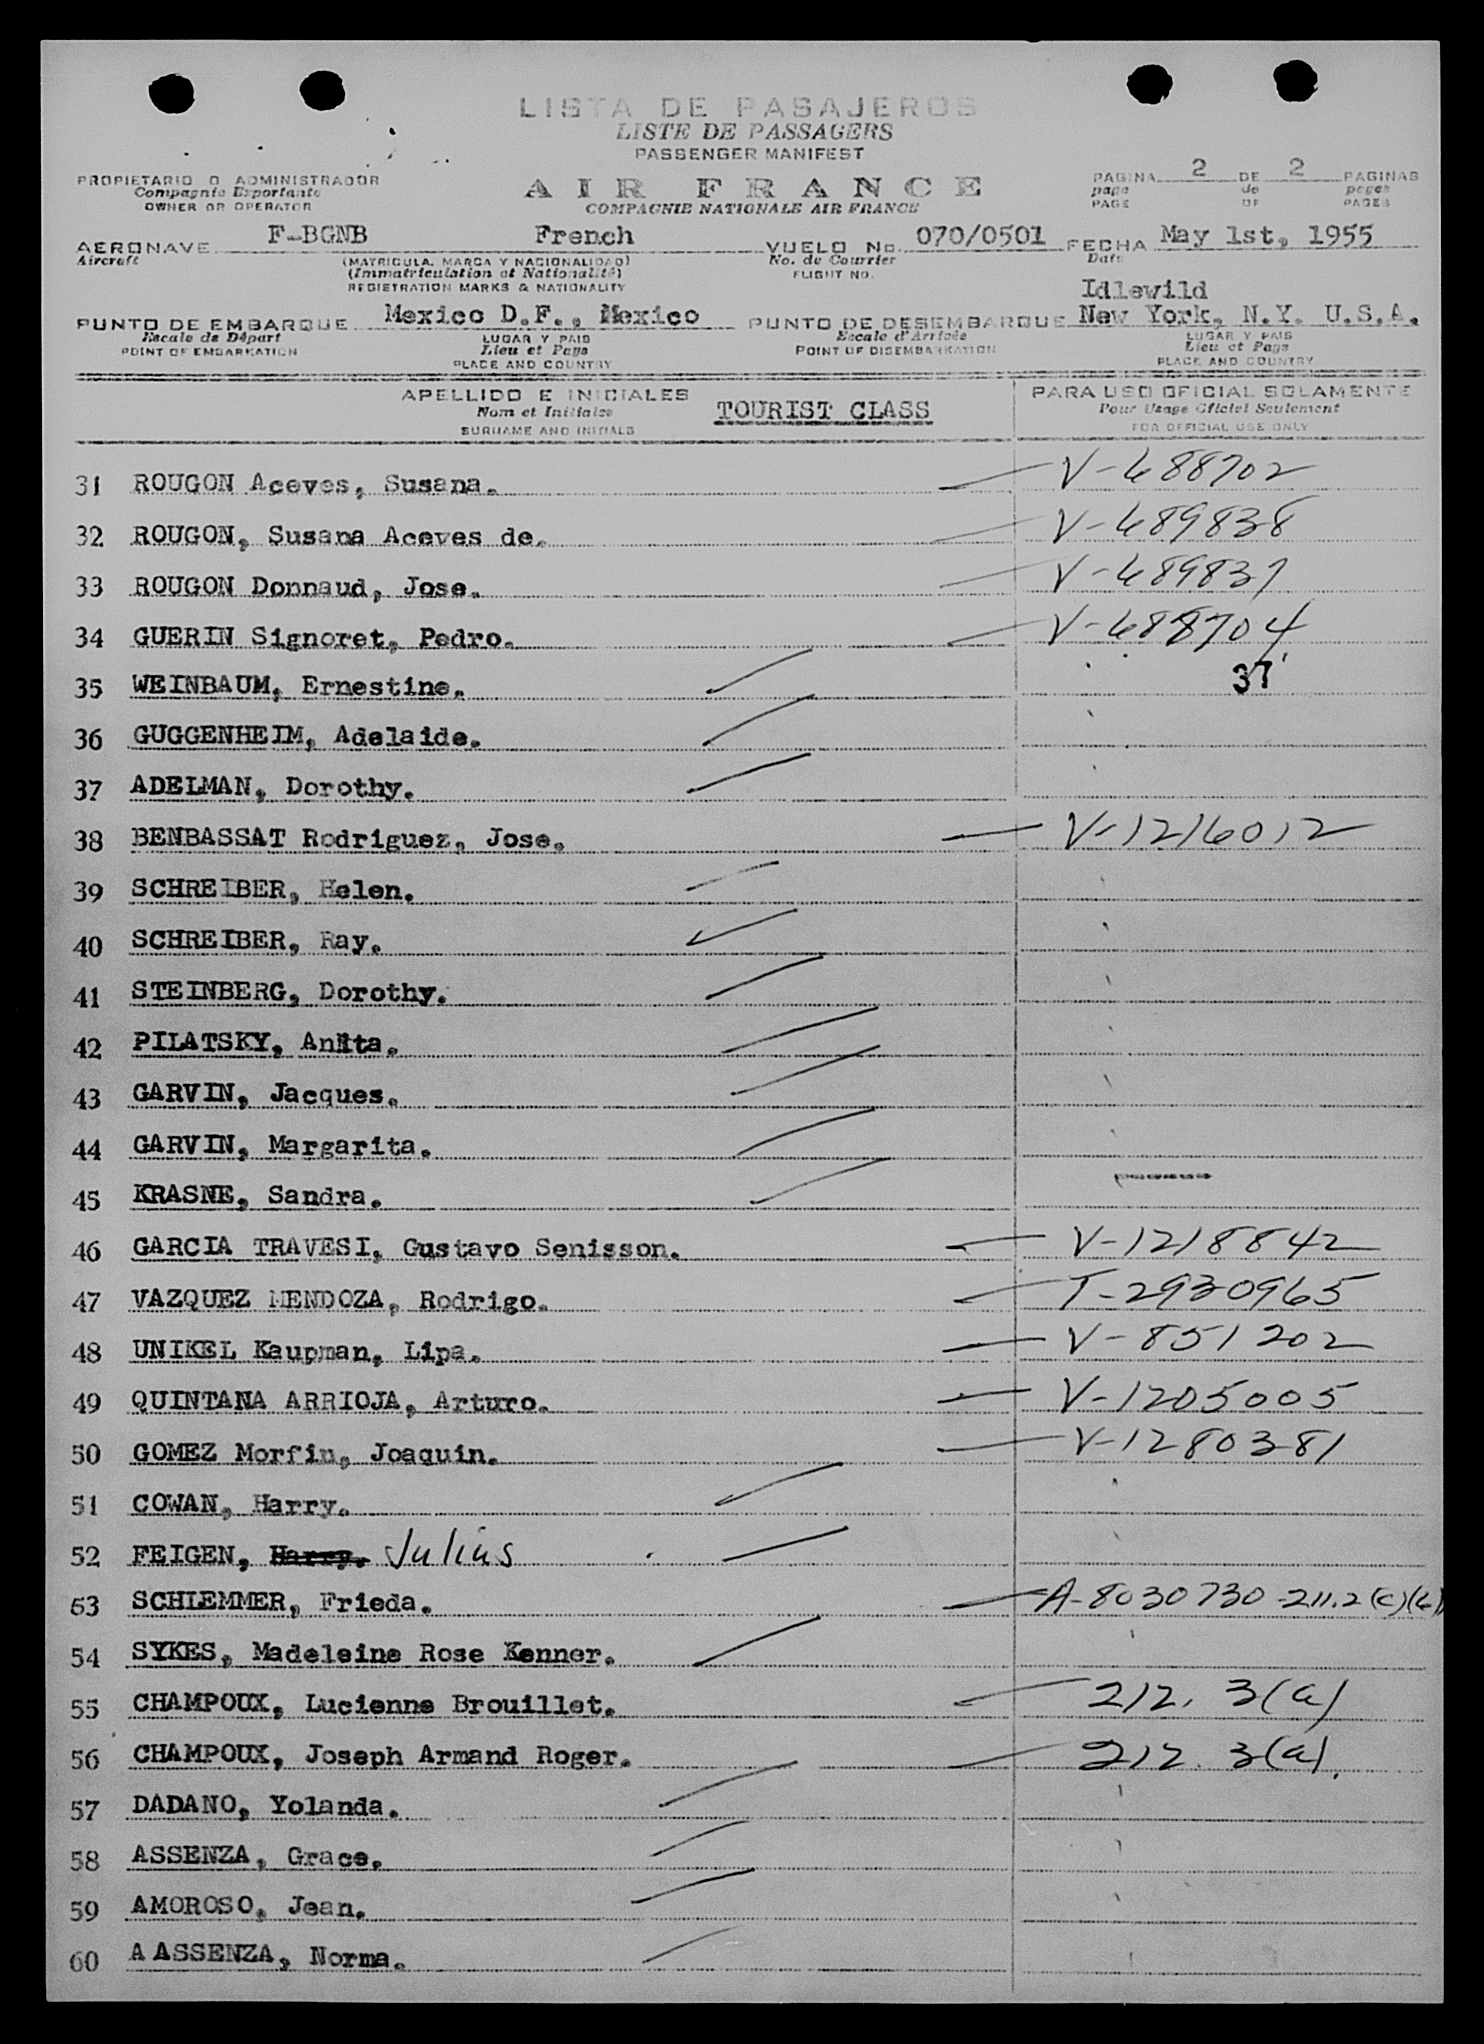 LISTA DE PASAJEROS
LISTE DE PASSAGERS
PASSENGER MANIFEST
PROPIETARIO O ADMINISTRADOR
Compagnie Exportante
OWNER OR OPERATOR
AIR FRANCE
COMPAGNIE NATIONALE AIR FRANCE
PAGINA 2 DE 2 PAGINAS
page de pages
PAGE OF PAGES
AERONAVE F-BGNB French VUELO No. 070/0501 FECHA May 1st, 1955
Aircraft (MATRICULA, MARCA Y NACIONALIDAD) No. de Courrier Date
(Immatriculation et Nationalité) FLIGHT NO.
REGISTRATION MARKS & NATIONALITY
Idlewild
PUNTO DE EMBARQUE Mexico D.F., Mexico PUNTO DE DESEMBARQUE New York, N.Y. U.S.A.
Escale de Départ LUGAR Y PAIS Escale d'Arrivée LUGAR Y PAIS
POINT OF EMBARKATION Lieu et Pays POINT OF DISEMBARKATION Lieu et Pays
PLACE AND COUNTRY PLACE AND COUNTRY
APELLIDO E INICIALES TOURIST CLASS PARA USO OFICIAL SOLAMENTE
Nom et Initiales Pour Usage Officiel Seulement
SURNAME AND INITIALS FOR OFFICIAL USE ONLY
31 ROUGON Aceves, Susana. V-688702
32 ROUGON, Susana Aceves de. V-689838
33 ROUGON Donnaud, Jose. V-689837
34 GUERIN Signoret, Pedro. V-688704
35 WEINBAUM, Ernestine. 37
36 GUGGENHEIM, Adelaide.
37 ADELMAN, Dorothy.
38 BENBASSAT Rodriguez, Jose. V-1216012
39 SCHREIBER, Helen.
40 SCHREIBER, Ray.
41 STEINBERG, Dorothy.
42 PILATSKY, Anita.
43 GARVIN, Jacques.
44 GARVIN, Margarita.
45 KRASNE, Sandra.
46 GARCIA TRAVESI, Gustavo Senisson. V-1218842
47 VAZQUEZ MENDOZA, Rodrigo. T-2930965
48 UNIKEL Kaupman, Lipa. V-851202
49 QUINTANA ARRIOJA, Arturo. V-1205005
50 GOMEZ Morfin, Joaquin. V-1280381
51 COWAN, Harry.
52 FEIGEN, Harry. Julius
53 SCHLEMMER, Frieda. A-8030730-211.2(c)(6)
54 SYKES, Madeleine Rose Kenner.
55 CHAMPOUX, Lucienne Brouillet. 212.3(a)
56 CHAMPOUX, Joseph Armand Roger. 212.3(a).
57 DADANO, Yolanda.
58 ASSENZA, Grace.
59 AMOROSO, Jean.
60 A ASSENZA, Norma.